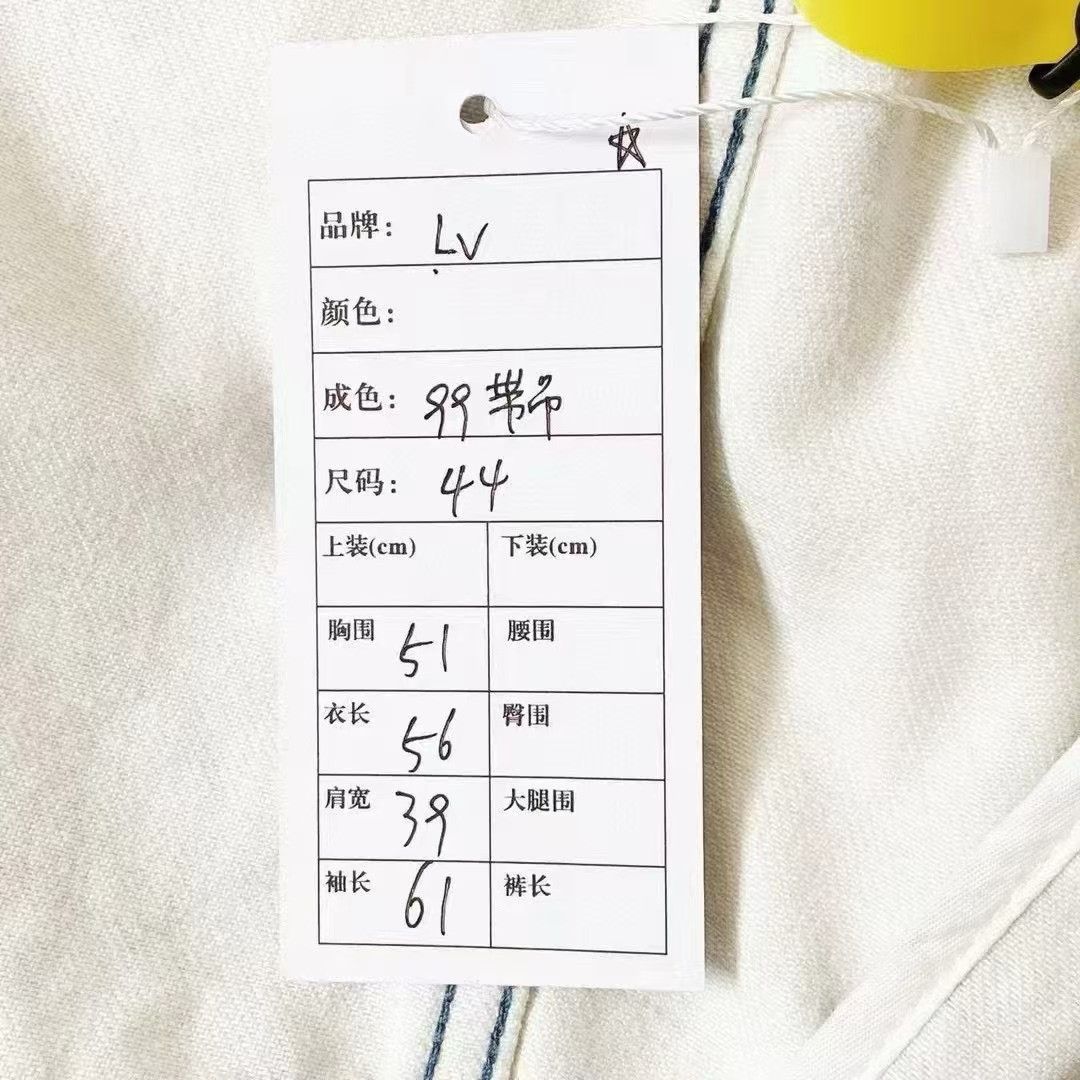 品牌： LV
颜色：
成色： 99带吊
尺码： 44
上装(cm) 下装(cm)
胸围 51 腰围
衣长 56 臀围
肩宽 39 大腿围
袖长 61 裤长